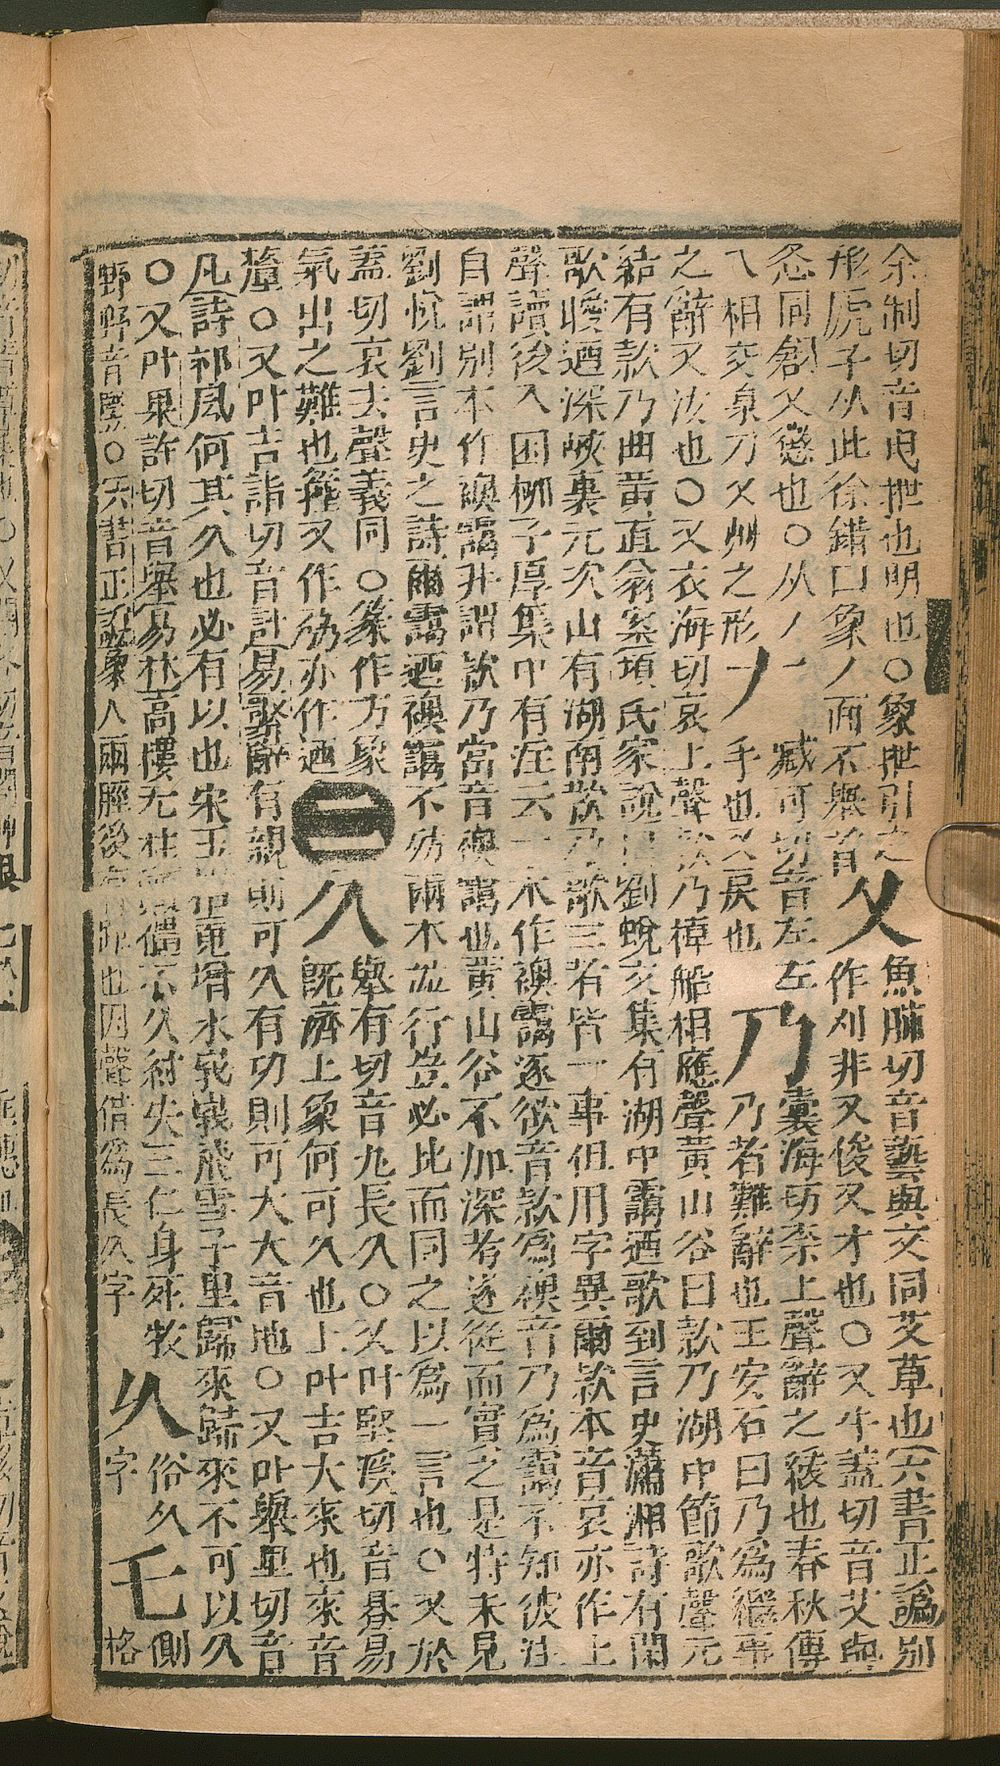 余制切音曳抴也明也〇象抴引之
形虒子从此徐鍇曰象丿而不舉首
乂
魚肺切音藝與交同芟草也六書正譌別
作刈非又俊乂才也〇又牛蓋切音艾與
㣻同創乂懲也〇从丿乀
相交象刀乂艸之形
𠂇
臧可切音左左
手也又戾也
乃
囊海切柰上聲辭之緩也春秋傳
乃者難辭也王安石曰乃為繼事
之辭又汝也〇又衣海切哀上聲欸乃棹船相應聲黃山谷曰欸乃湖中節歌聲元
結有欸乃曲黃直翁案項氏家說曰劉蛻文集有湖中靄迺歌劉言史瀟湘詩有閑
歌曖迺深峽裏元次山有湖南欸乃歌三者皆一事但用字異爾欸本音哀亦作上
聲讀後人因柳子厚集中有注云一本作襖靄遂欲音欸為襖音乃為靄不知彼注
自謂別本作襖靄非謂欸乃當音襖靄也黃山谷不加深考遂從而實之是特未見
劉蛻劉言史之詩爾靄迺襖靄不妨兩本並行豈必比而同之以為一言也〇又於
蓋切哀去聲義同〇篆作𠄎象
氣出之難也籀又作𢎧亦作迺
三
久
舉有切音九長久〇久叶堅溪切音朞易
旣濟上象何可久也上叶吉大來也來音
釐〇又叶吉詣切音計易繫辭有親則可久有功則可大大音地〇又叶舉里切音
几詩邶風何其久也必有以也宋玉招䰟增冰峩峩飛雪千里歸來歸來不可以久
〇又叶果許切音舉易林高樓无柱 僵不久紂失三仁身死牧
野野音墅〇六書正譌象人兩脛後有 也因聲借為長久字
乆
俗久
字
乇
側
格